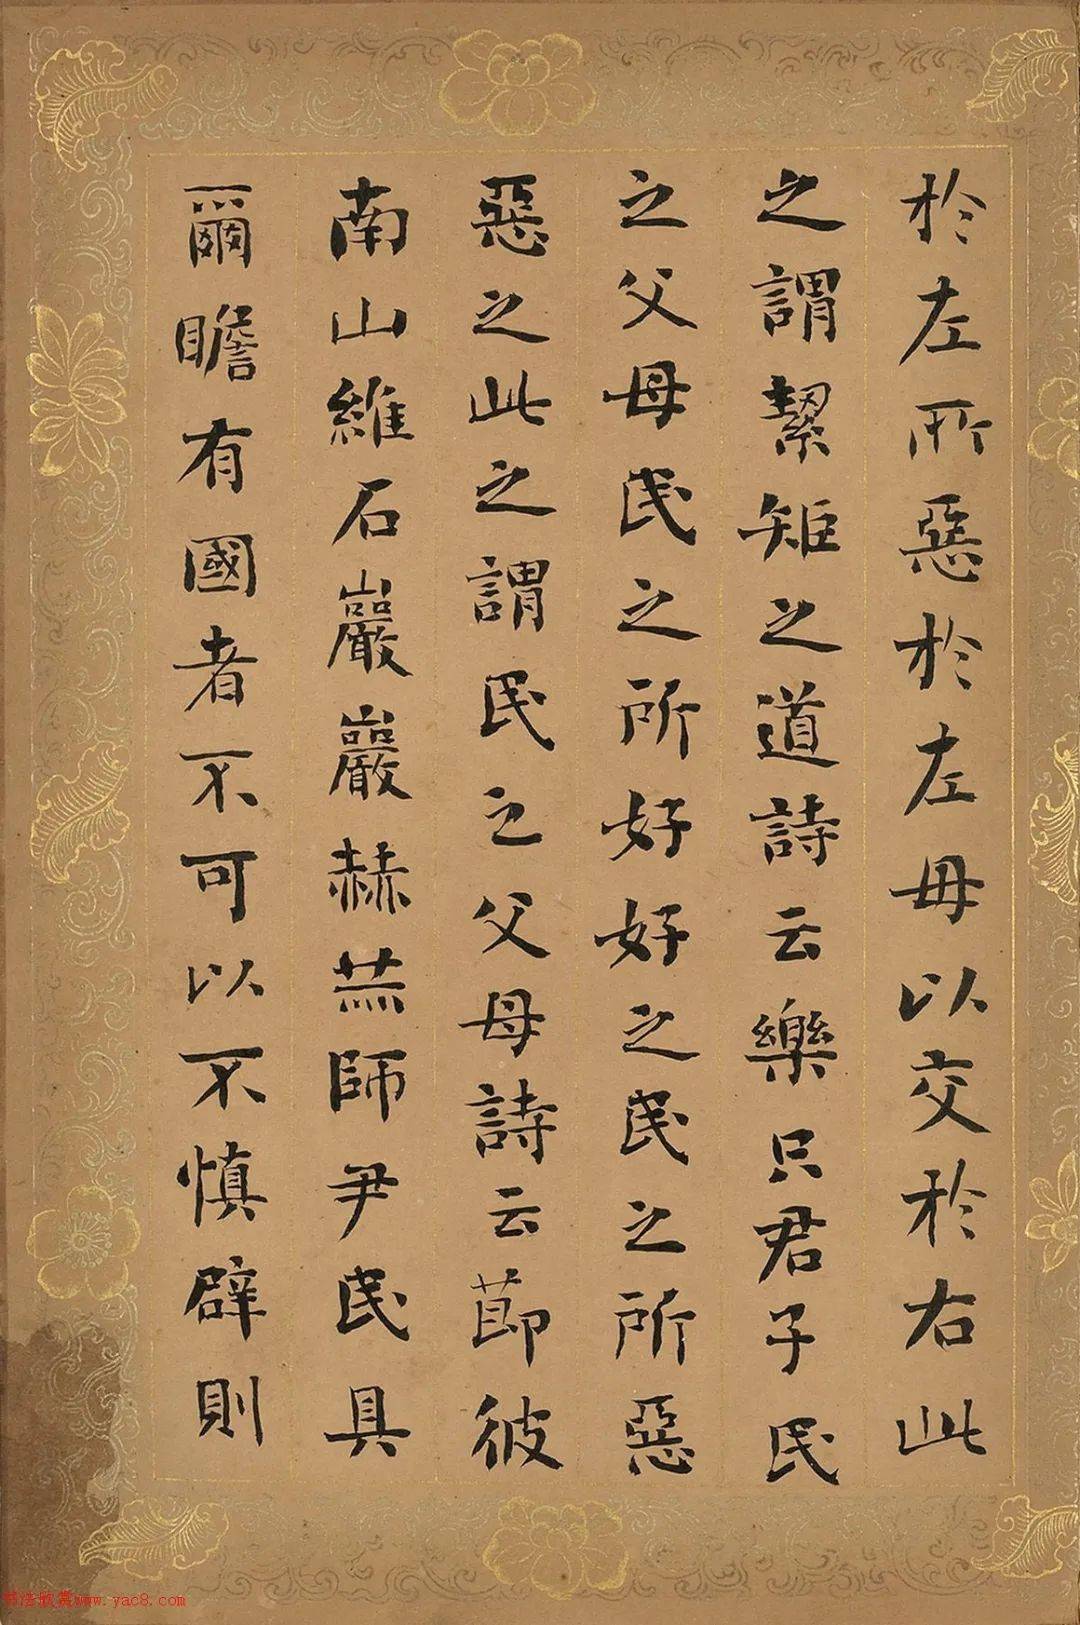 於左所惡於左毋以交於右此
之謂絜矩之道詩云樂只君子民
之父母民之所好好之民之所惡
惡之此之謂民之父母詩云節彼
南山維石巖巖赫赫師尹民具
爾瞻有國者不可以不慎辟則
书法欣赏www.yac8.com